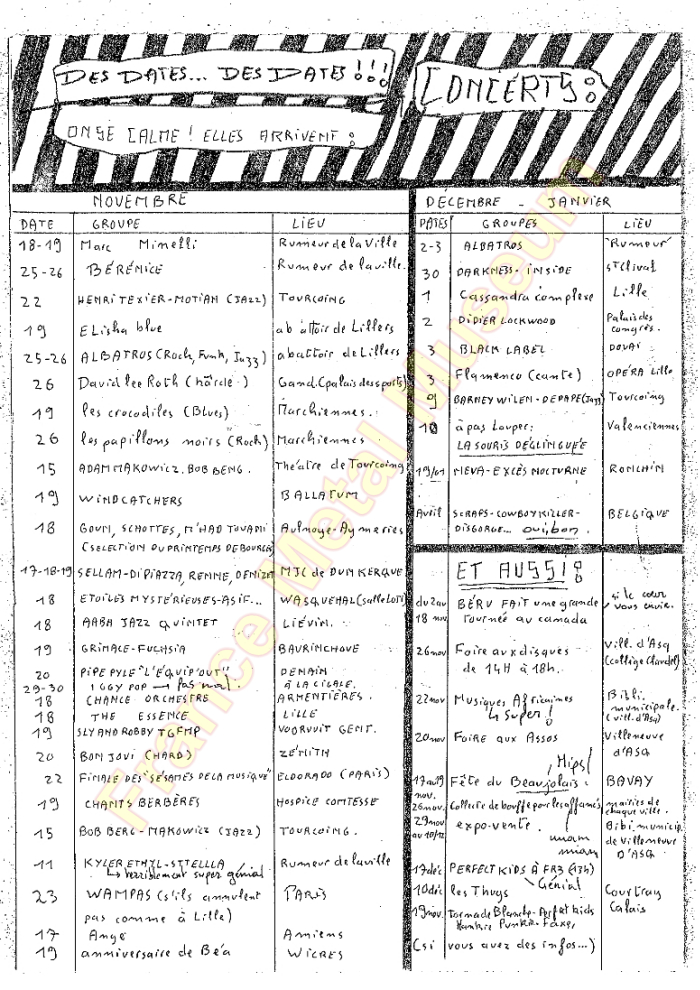 DES DATES... DES DATES!!!
ON SE CALME! ELLES ARRIVENT:
CONCERTS:
NOVEMBRE
DATE GROUPE LIEU
18-19 Marc Minelli Rumeur de la Ville
25-26 BÉRÉNICE Rumeur de la ville.
22 HENRI TEXIER-MOTIAN (JAZZ) TOURCOING
19 ELisha blue abattoir de Lillers
25-26 ALBATROS (Rock, Funk, Jazz) abattoir de Lillers
26 David lee Roth (hârde!) Gand. (palais des sports)
19 les crocodiles (Blues) Marchiennes.
26 les papillons noirs (Rock) Marchiennes
15 ADAM MAKOWICZ. BOB BERG. Théâtre de Tourcoing
19 WINDCATCHERS BALLATUM
18 GOUN, SCHOTTES, M'HAD TOUAMI Aulnoye-Aymeries
(SELECTION DU PRINTEMPS DE BOURGES)
17-18-19 SELLAM-DI PIAZZA, REMME, DENIZET MJC de DUNKERQUE
18 ETOILES MYSTÉRIEUSES-ASIF... WASQUEHAL (salle
18 AABH JAZZ QUINTET LIÉVIN.
19 GRIMACE-FUCHSIA BAURINCHOVE
20 PIPE PYLE "L'ÉQUIP'OUT" DENAIN
29-30 IGGY POP → pas mal. À LA CIGALE.
18 CHANCE ORCHESTRE ARMENTIÈRES.
18 THE ESSENCE LILLE
19 SLY AND ROBBY TGFMP VOORVUIT GENT.
20 BON JOVI (HARD) ZÉNITH
22 FINALE DES "SÉSAMES DE LA MUSIQUE" ELDORADO (PARIS)
19 CHANTS BERBÈRES HOSPICE COMTESSE
15 BOB BERG-MAKOWICZ (JAZZ) TOURCOING.
11 KYLER, ETHYL-STTELLLA Rumeur de la ville
↳ terriblement super génial
23 WAMPAS (s'ils annulent PARIS
pas comme à Lille)
17 Ange Amiens
19 anniversaire de Béa WICRES
DÉCEMBRE - JANVIER
DATES GROUPES LIEU
2-3 ALBATROS Rumeur
30 DARKNESS-INSIDE
1 Cassandra complexe Lille
2 DIDIER LOCKWOOD Palais des
congrès.
3 BLACK LABEL DOUAI
3 Flamenco (cante) OPÉRA Lille
9 BARNEY WILEN-DEPAPE (Jazz) Tourcoing
10 à pas louper: Valenciennes
LA SOURIS DÉGLINGUÉE
19/01 NEVA-EXCÈS NOCTURNE RONCHIN
Avril SCRAPS-COWBOY KILLER- BELGIQUE
DISGORGE... oui, bon.
ET AUSSI:
du 2 au BÉRU FAIT une grande si le cœur
18 nov tournée au canada vous envie.
26 nov Foire aux disques Vill. d'Asq
de 14H à 18h. (collège
22 nov Musiques Africaines Bibli.
↳ super! municipale.
(vill. d'Asq)
20 nov FOIRE aux Assos Villeneuve
D'ASQ
Hips!
17 au 19 Fête du Beaujolais. BAVAY
nov.
26 nov. Collecte de bouffe pour les affamés mairies de
chaque ville.
29 nov expo-vente. Bibi. municip.
au 10/12 miam de Villeneuve
miam D'ASQ
17 déc PERFECT KIDS À FR3 (13h)
↳ Génial
10 déc les Thugs Courtray
19 nov. Tornade Blanche-Perfect Kids Calais
(si vous avez des infos...)
France Metal Museum